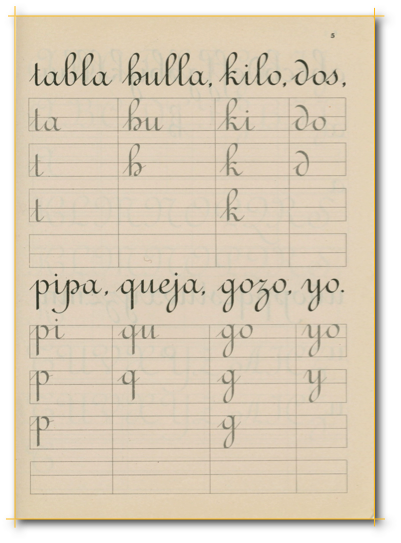 5
tabla hulla, kilo, dos,
ta hu ki do
t h k d
t k
pipa, queja, gozo, yo.
pi qu go yo
p q g y
p g